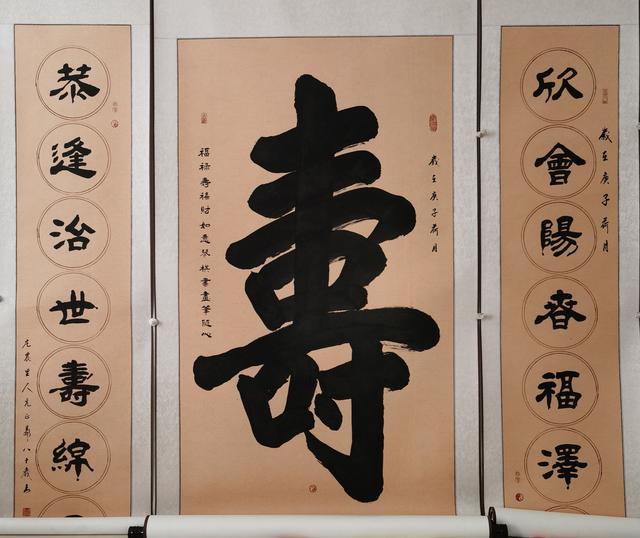 欣會陽春福澤
歲在庚子荷月
歲在庚子荷月
壽
福禄壽禧財如意琴棋書畫筆随心
恭逢治世壽綿